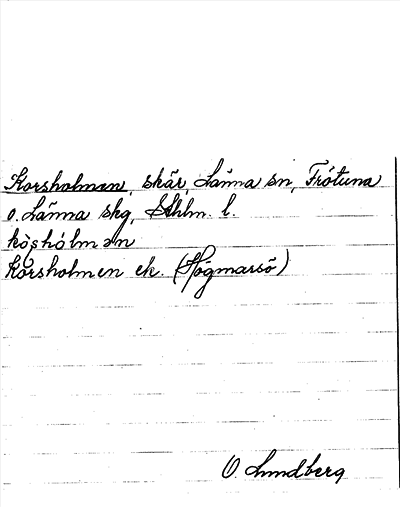 Korsholmen, skär, Länna sn, Frötuna
o. Länna skg, Sthlm. l.
kòṣhólmən
Korsholmen ek. (Högmarsö)
O. Lundberg